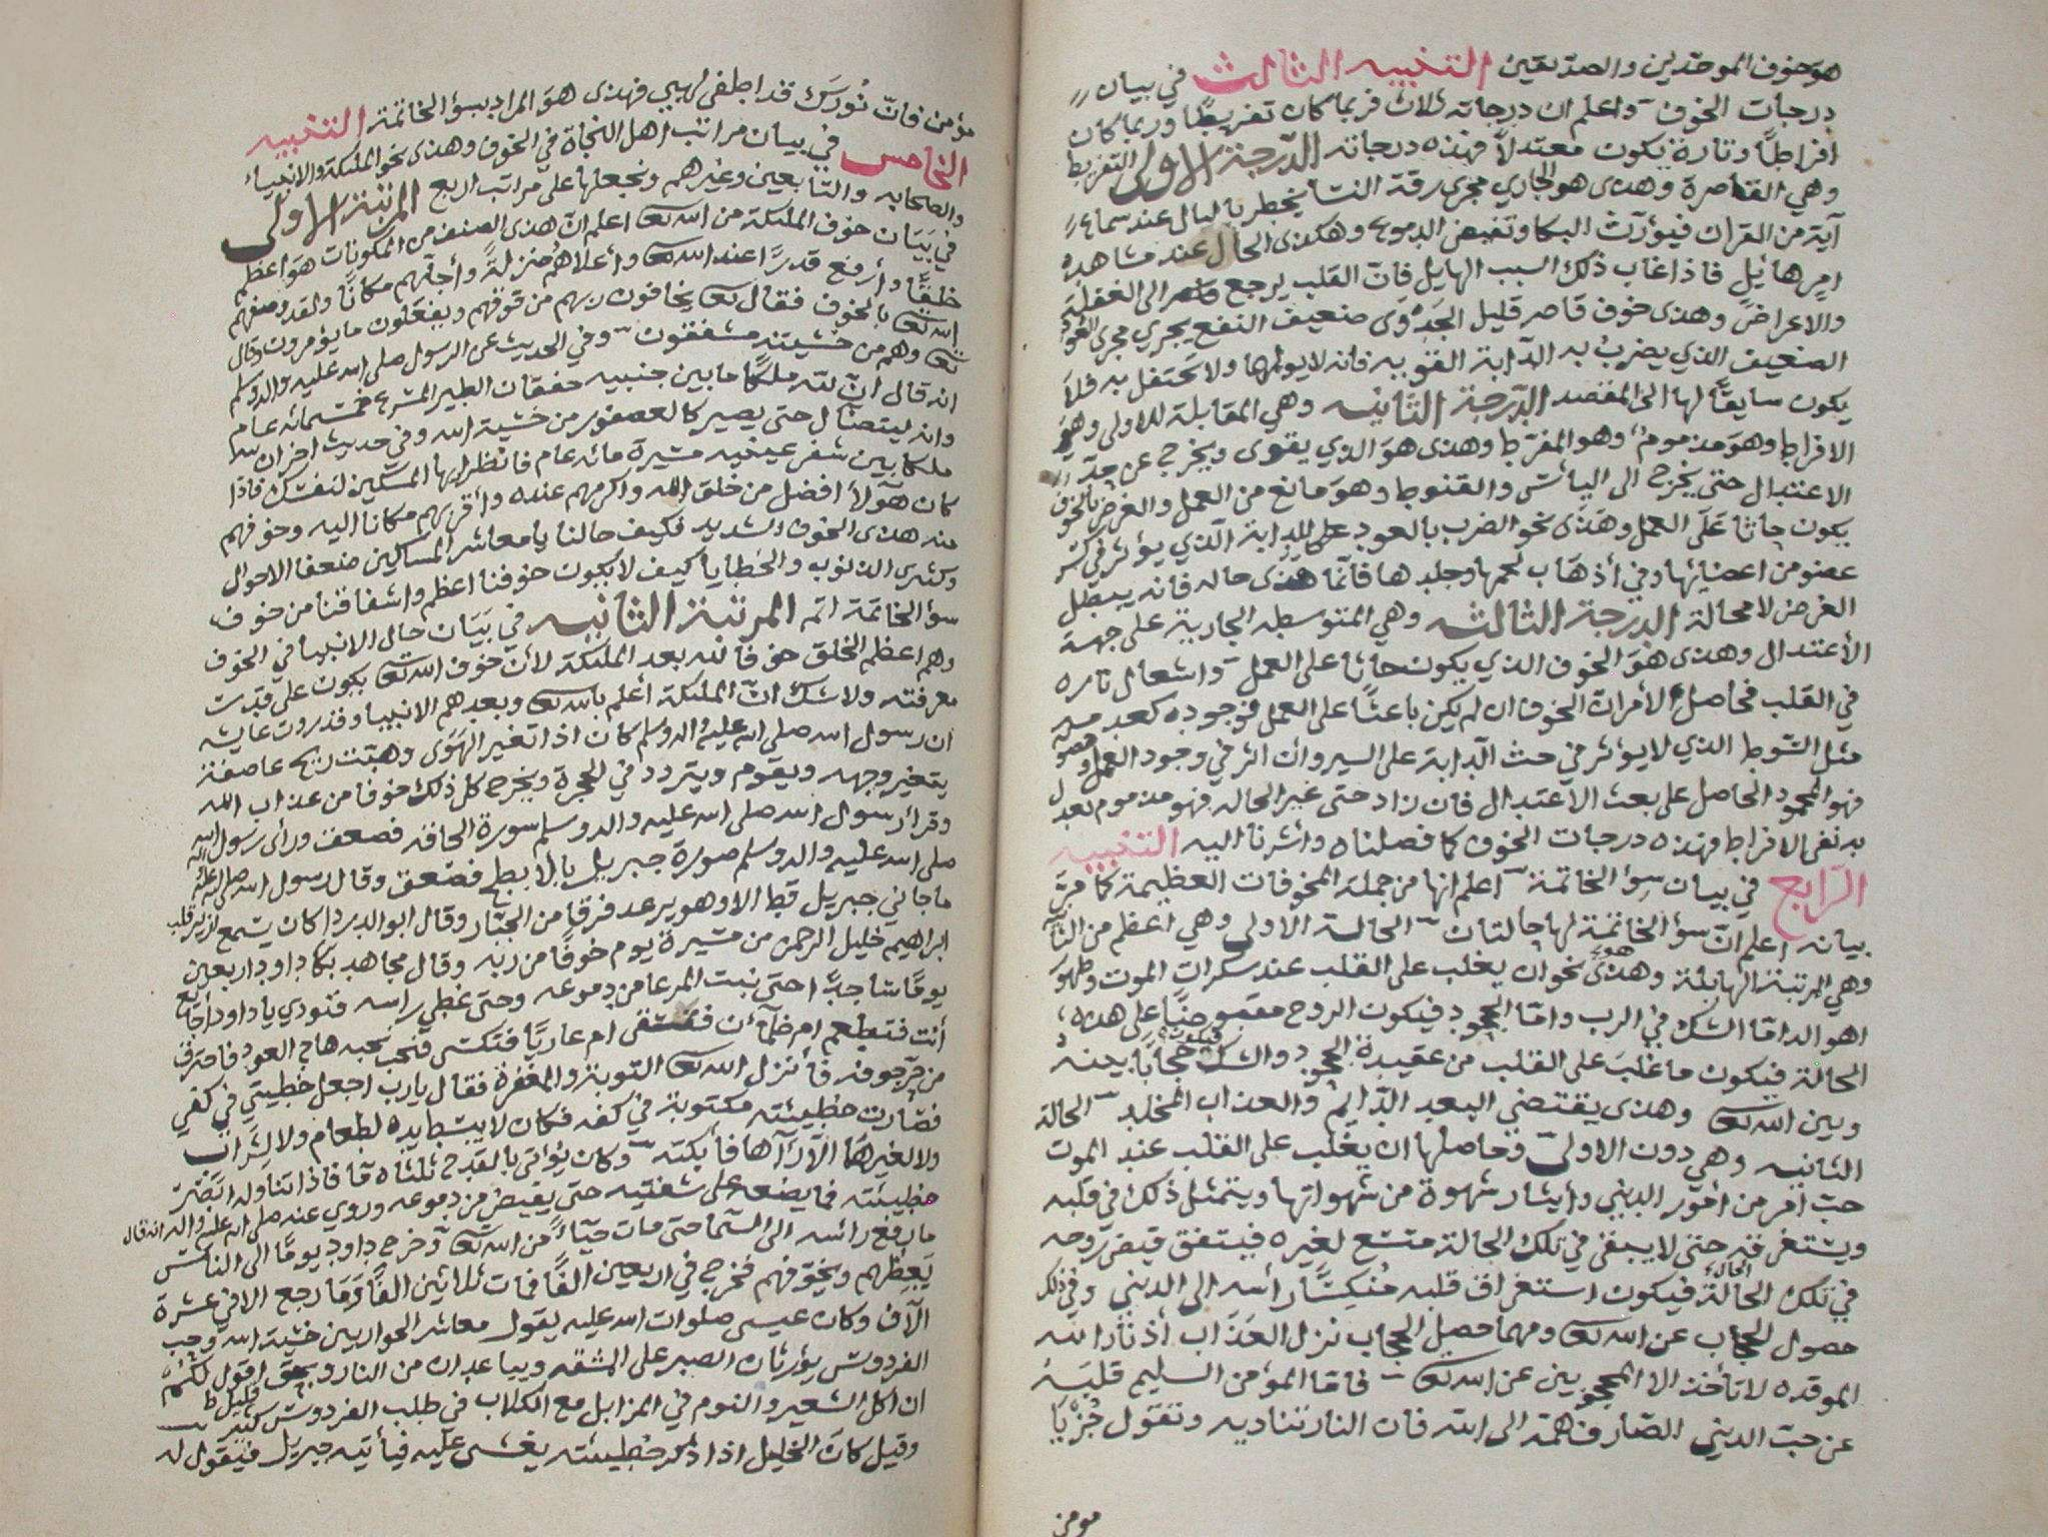 هو خوف الموحدين والصديقين التنبيه الثالث في بيان
درجات الخوف واعلم ان درجاته ثلاث فربما كان تفريطًا وربما كان
افراطًا وتارة يكون معتدلاً فهذه درجاته الدرجة الاولى التفريط
وهي القاصرة وهذى هو الجاري مجرى رقة النسا يخطر بالبال عند سماع
آية من القران فيؤرث البكا وتفيض الدموع وهكذى الحال عند مشاهدة
امرٍ هائيلٍ فاذا غاب ذلك السبب الهايل فان القلب يرجع الى الغفلة
والاعراض وهذى خوف قاصر قليل الجدوى ضعيف النفع يجري مجرى العود
الضعيف الذي يضرب به الدابة القويه فانه لا يولمها ولا تحتفل به فلا
يكون سايقًا لها الى المقصد الدرجة الثانيه وهي المقابلة للاولى وهو
الافراط وهو مذموم وهو المفرط وهذى هو الذي يقوى ويخرج عن حد
الاعتدال حتى يخرج الى اليأس والقنوط وهو مانع من العمل والغرض بالخوف
يكون حاثا على العمل وهذى نحو الضرب بالعود على الدابة الذي يؤثر في كسر
عضو من اعضائها وفي أذهاب لحمها وجلدها فانما هذى حاله فانه يبطل
الغرض لا محالة الدرجة الثالثه وهي المتوسطه الجارية على جهة
الأعتدال وهذى هو الخوف الذي يكون حاثا على العمل واشعال ناره
في القلب فحاصل الأمر ان الخوف ان لم يكن باعثًا على العمل فوجوده كعدمه
مثل السوط الذي لا يوثر في حث الدابة على السير وان اثر في وجود العمل
فهو المحمود الحاصل على بعث الاعتدال فان زاد حتى غير الحاله فهو مذموم
به نفى الافراط فهذه درجات الخوف كما فصلناه واشرنا اليه التنبيه
الرابع في بيان سؤ الخاتمة اعلم انها من جملة المخوفات العظيمة كما مر
بيانه اعلم ان سؤ الخاتمة لها حالتان الحالة الاولى وهي اعظم من الثانية
وهي المرتبة الهايلة وهذى هو نحو ان يغلب على القلب عند سكرات الموت وظهور
اهواله اما الشك في الرب واما الجحود فيكون الروح مقبوضًا على هذه
الحالة فيكون ما غلب على القلب من عقيدة الجحود والشك حجابًا بينه
وبين الله تعا وهذى يقتضي البعد الدايم والعذاب المخلد الحالة
الثانيه وهي دون الاولى وحاصلها ان يغلب على القلب عند الموت
حب امر من أمور الديني وأيثار شهوة من شهواتها ويتمثل ذلك في قلبه
ويستغرقه حتى لا يبقى في تلك الحالة متسع لغيره فيتفق قبض روحه
في تلك الحالة فيكون استغراق قلبه مُنكِسًا رأسه الى الديني وفي ذلك
حصول الحجاب عن الله تعا ومهما حصل الحجاب نزل العذاب أذ نار الله
الموقده لا تأخذ الا المحجوبين عن الله تعا فاما المؤمن السليم قلبه
عن حب الديني الصارف همه الى الله فان النار تناديه وتقول جُز يا
مومن
مؤمن فان نورك قد اطفى لهيبي فهذى هو المراد بسؤ الخاتمة التنبيه
الخامس في بيان مراتب اهل النجاة في الخوف وهذى نحو الملئكة والانبياء
والصحابه والتابعين وغيرهم ونجعلها على مراتب اربع المرتبة الاولى
في بيان خوف الملئكة من الله تعا اعلم ان هذى الصنف من المكونات هو اعظم
خلقًا وأرفع قدرًا عند الله تعا وأعلاهم منزلةً وأجلهم مكانًا ولقد وصفهم
الله تعا بالخوف فقال تعا يخافون ربهم من فوقهم ويفعلون ما يؤمرون وقال
تعا وهم من خشيته مشفقون وفي الحديث عن الرسول صلى الله عليه واله وسلم
انه قال ان لله ملكًا ما بين جنبيه خفقان الطير المسرع خمسمائه عام
وانه ليتضأل حتى يصير كالعصفور من خشية الله وفي حديث اخر ان لله
ملكا بين شفر عينيه مسيرة مائه عام فانظر ايها المسكين لنفسك فاذا
كان هؤلأ افضل من خلق الله واكرمهم عنده وأقربهم مكانا اليه وخوفهم
منه هذى الخوف الشديد فكيف حالنا يا معاشر المساكين ضعفا الاحوال
وكثرى الذنوب والخطايا كيف لا يكون خوفنا اعظم واشفاقنا من خوف
سؤ الخاتمة اتم المرتبة الثانيه في بيان حال الانبيا في الخوف
وهم اعظم الخلق خوفا لله بعد الملئكة لأن خوف الله تعا يكون على قدرت
معرفته ولا شك ان الملئكة أعلم بالله تعا وبعدهم الانبيا وقد روت عايشه
ان رسول الله صلى الله عليه واله وسلم كان اذا تغير الهوى وهبت ريح عاصفة
يتغير وجهه ويقوم ويتردد في الحجرة ويخرج كل ذلك خوفا من عذاب الله
وقرأ رسول الله صلى الله عليه واله وسلم سورة الحاقه فصعق ورأى رسول الله
صلى الله عليه واله وسلم صورة جبريل بالأبطح فصعق وقال رسول الله صلى الله عليه واله
ما جاني جبريل قط الا وهو يرعد فرقا من الجبار وقال ابو الدردا كان يسمع ازيز قلب
ابراهيم خليل الرحمن من مسيرة يوم خوفًا من ربه وقال مجاهد بكا داود اربعين
يومًا ساجدًا حتى نبت المرعا من دموعه وحتى غطى راسه فنودي يا داود أجايع
أنت فتطعم ام ظمآن فتسقى ام عاريًا فتكسى فنحب نحبه هاج العود فاحترق
من حر جوفه فأنزل الله تعا التوبة والمغفرة فقال يا رب اجعل خطيئتي في كفي
فصارت خطيئته مكتوبة في كفه فكان لا يبسط يده لطعام ولا لشراب
ولا لغيرهما الا رآها فأبكته وكان يؤتى بالقدح ثلثاه ماً فاذا تناوله ابصر
خطيئته فما يضعه على شفتيه حتى يفيض من دموعه وروي عنه صلى الله عليه واله انه قال
ما رفع رأسه الى السما حتى مات حيآءً من الله تعا وخرج داود يومًا الى الناس
يعظهم ويخوفهم فخرج في اربعين الفًا فمات ثلاثين الفًا وما رجع الا في عشرة
الآف وكان عيسى صلوات الله عليه يقول معاشر الحواريين خشية الله وحب
الفردوس يؤرثان الصبر على المشقه ويباعدان من النار وبحق اقول لكم
ان أكل الشعير والنوم في المزابل مع الكلاب في طلب الفردوس قليل
وقيل كان الخليل اذا ذكر خطيئته يغشى عليه فيأتيه جبريل فيقول له